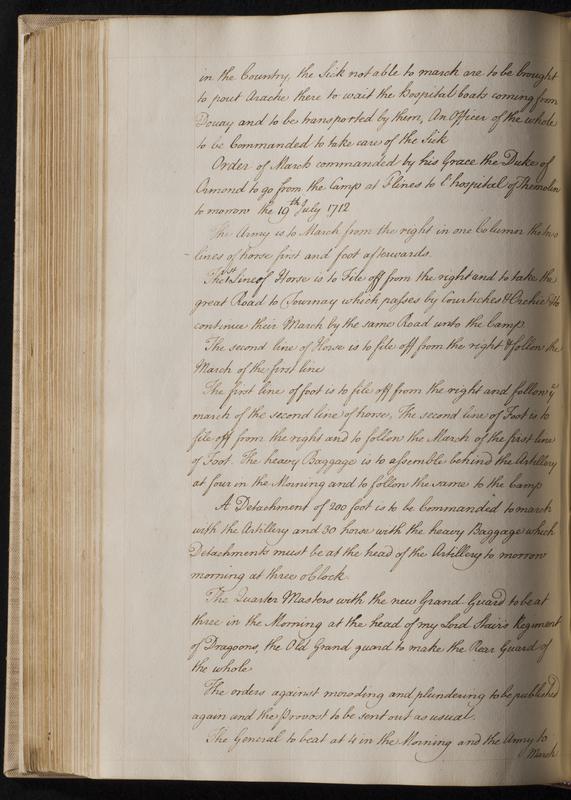 in the Country, the Sick not able to march are to be brought
to pont Arache there to wait the hospital boats coming from
Douay and to be transported by them, An Officer of the whole
to be Commanded to take care of the Sick
Order of March commanded by his Grace the Duke of
Ormond to go from the Camp at Flines to l'hospital of Themolin
to morrow the 19th July 1712
The Army is to March from the right in one Column the two
lines of horse first and foot afterwards.
The 1st Line of Horse is to File off from the right and to take the
great Road to Tournay which passes by Courtiches & Orchie & to
continue their March by the same Road unto the Camp
The second line of Horse is to file off from the right & follow the
March of the first line
The first line of foot is to file off from the right and follow ye
march of the second line of horse, The second line of Foot is to
file off from the right and to follow the March of the first line
of Foot. The heavy Baggage is to assemble behind the Artillery
at four in the Morning and to follow the same to the Camp
A Detachment of 200 foot is to be Commanded to march
with the Artillery and 30 horse with the heavy Baggage which
Detachments must be at the head of the Artillery to morrow
morning at three oClock
The Quarter Masters with the new Grand Guard to be at
three in the Morning at the head of my Lord Stair's Regiment
of Dragoons, the Old Grand guard to make the Rear Guard of
the whole
The orders against moroding and plundering to be published
again and the Provost to be sent out as usual.
The General to beat at 4 in the Morning and the Army to
March